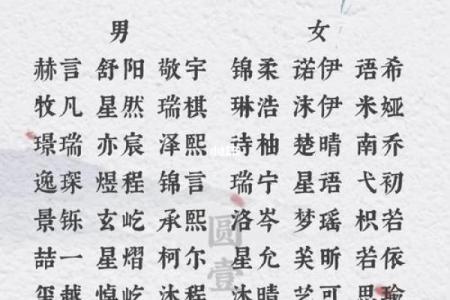 男 女
赫言 舒阳 敬宇 锦柔 诺伊 语希
牧凡 星然 瑞棋 琳浩 沫伊 米娅
璟瑞 亦宸 泽熙 诗柚 楚晴 南乔
逸琛 煜程 锦言 瑞宁 星语 弋初
景铄 玄屹 承熙 洛岑 梦瑶 枳若
喆一 星熠 柯尔 星允 芙昕 若依
玺越 焯屹 沐程 沐晴 艺可 思瑜
圆壹